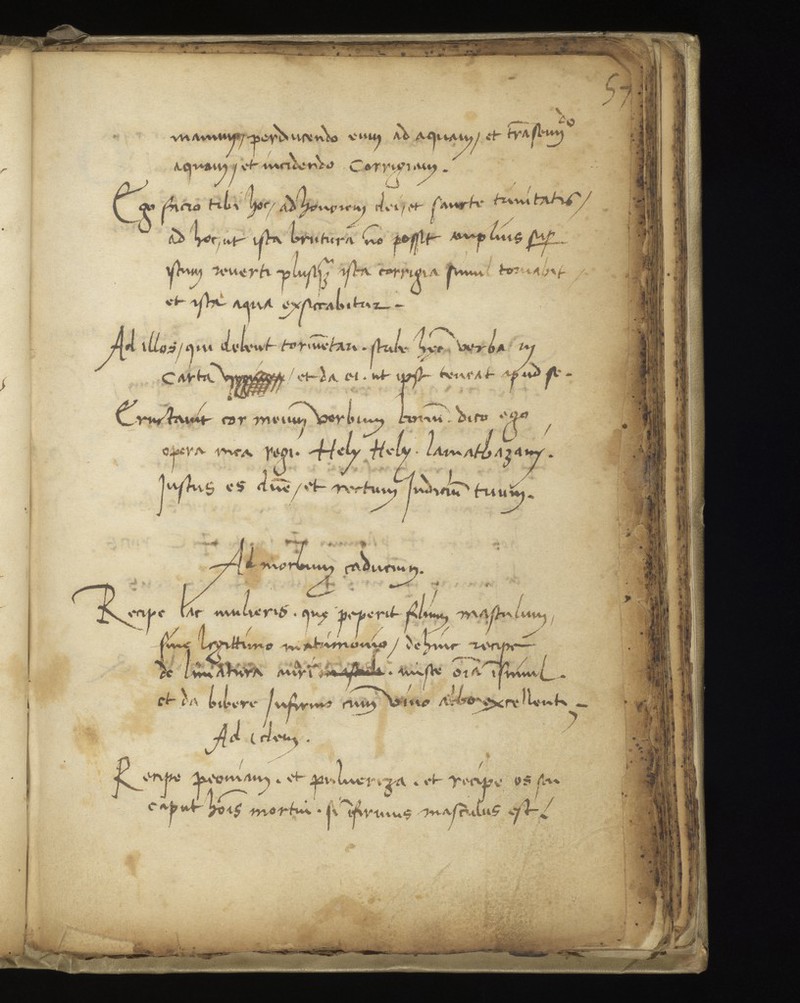 57
manum, perducendo eum ad aquam, et trāseundo
aquam, et incidendo Corrigiam.
Ego facio tibi hoc, ad honorem dei, et sancte trinitatis,
ad hoc, ut ista ñō possit amplius sup̱
istum reverti plusq̄ ista corrigia simul tornabit
et ista aqua exsiccabitur.
Ad illos, qui debent tormētari. scribe hec verba in
Carta, et da ei. ut ip̄e teneat apud se.
Eructavit cor meum verbum bonū. dico ego
opera mea regi. Hely Hely. lamathazani.
Justus es dn̄e, et rectum Judiciū tuum.
Ad morbum caducum.
Recipe lac mulieris. quę peperit filium masculum,
sinę legittimo matrimonio, dehinc recipe
de limatura auri. miste oīa īsimul.
et da bibere Infirmo cum vino albo excellenti
Ad idem.
Recipe peoniam. et pulveriza. et recipe os seu
caput hoīs mortui. si īfirmus masculus est,